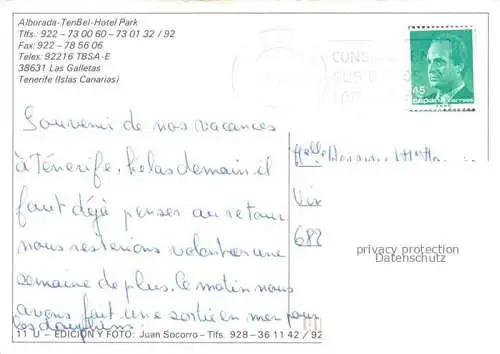 Alborada-TenBel-Hotel Park
Tlfs.: 922 - 73 00 60 - 73 01 32 / 92
Fax: 922 - 78 56 06
Telex: 92216 TBSA-E
38631 Las Galletas
Tenerife (Islas Canarias)
45
ESPAÑA correos
Souvenir de nos vacances
à Ténerife, hélas demain il
faut déjà penser au retour
nous resterions volontier une
semaine de plus. Ce matin nous
avons fait une sortie en mer pour
les dauphins.
Melle
688
privacy protection
Datenschutz
11 U - EDICIÓN Y FOTO: Juan Socorro - Tlfs. 928 - 36 11 42 / 92